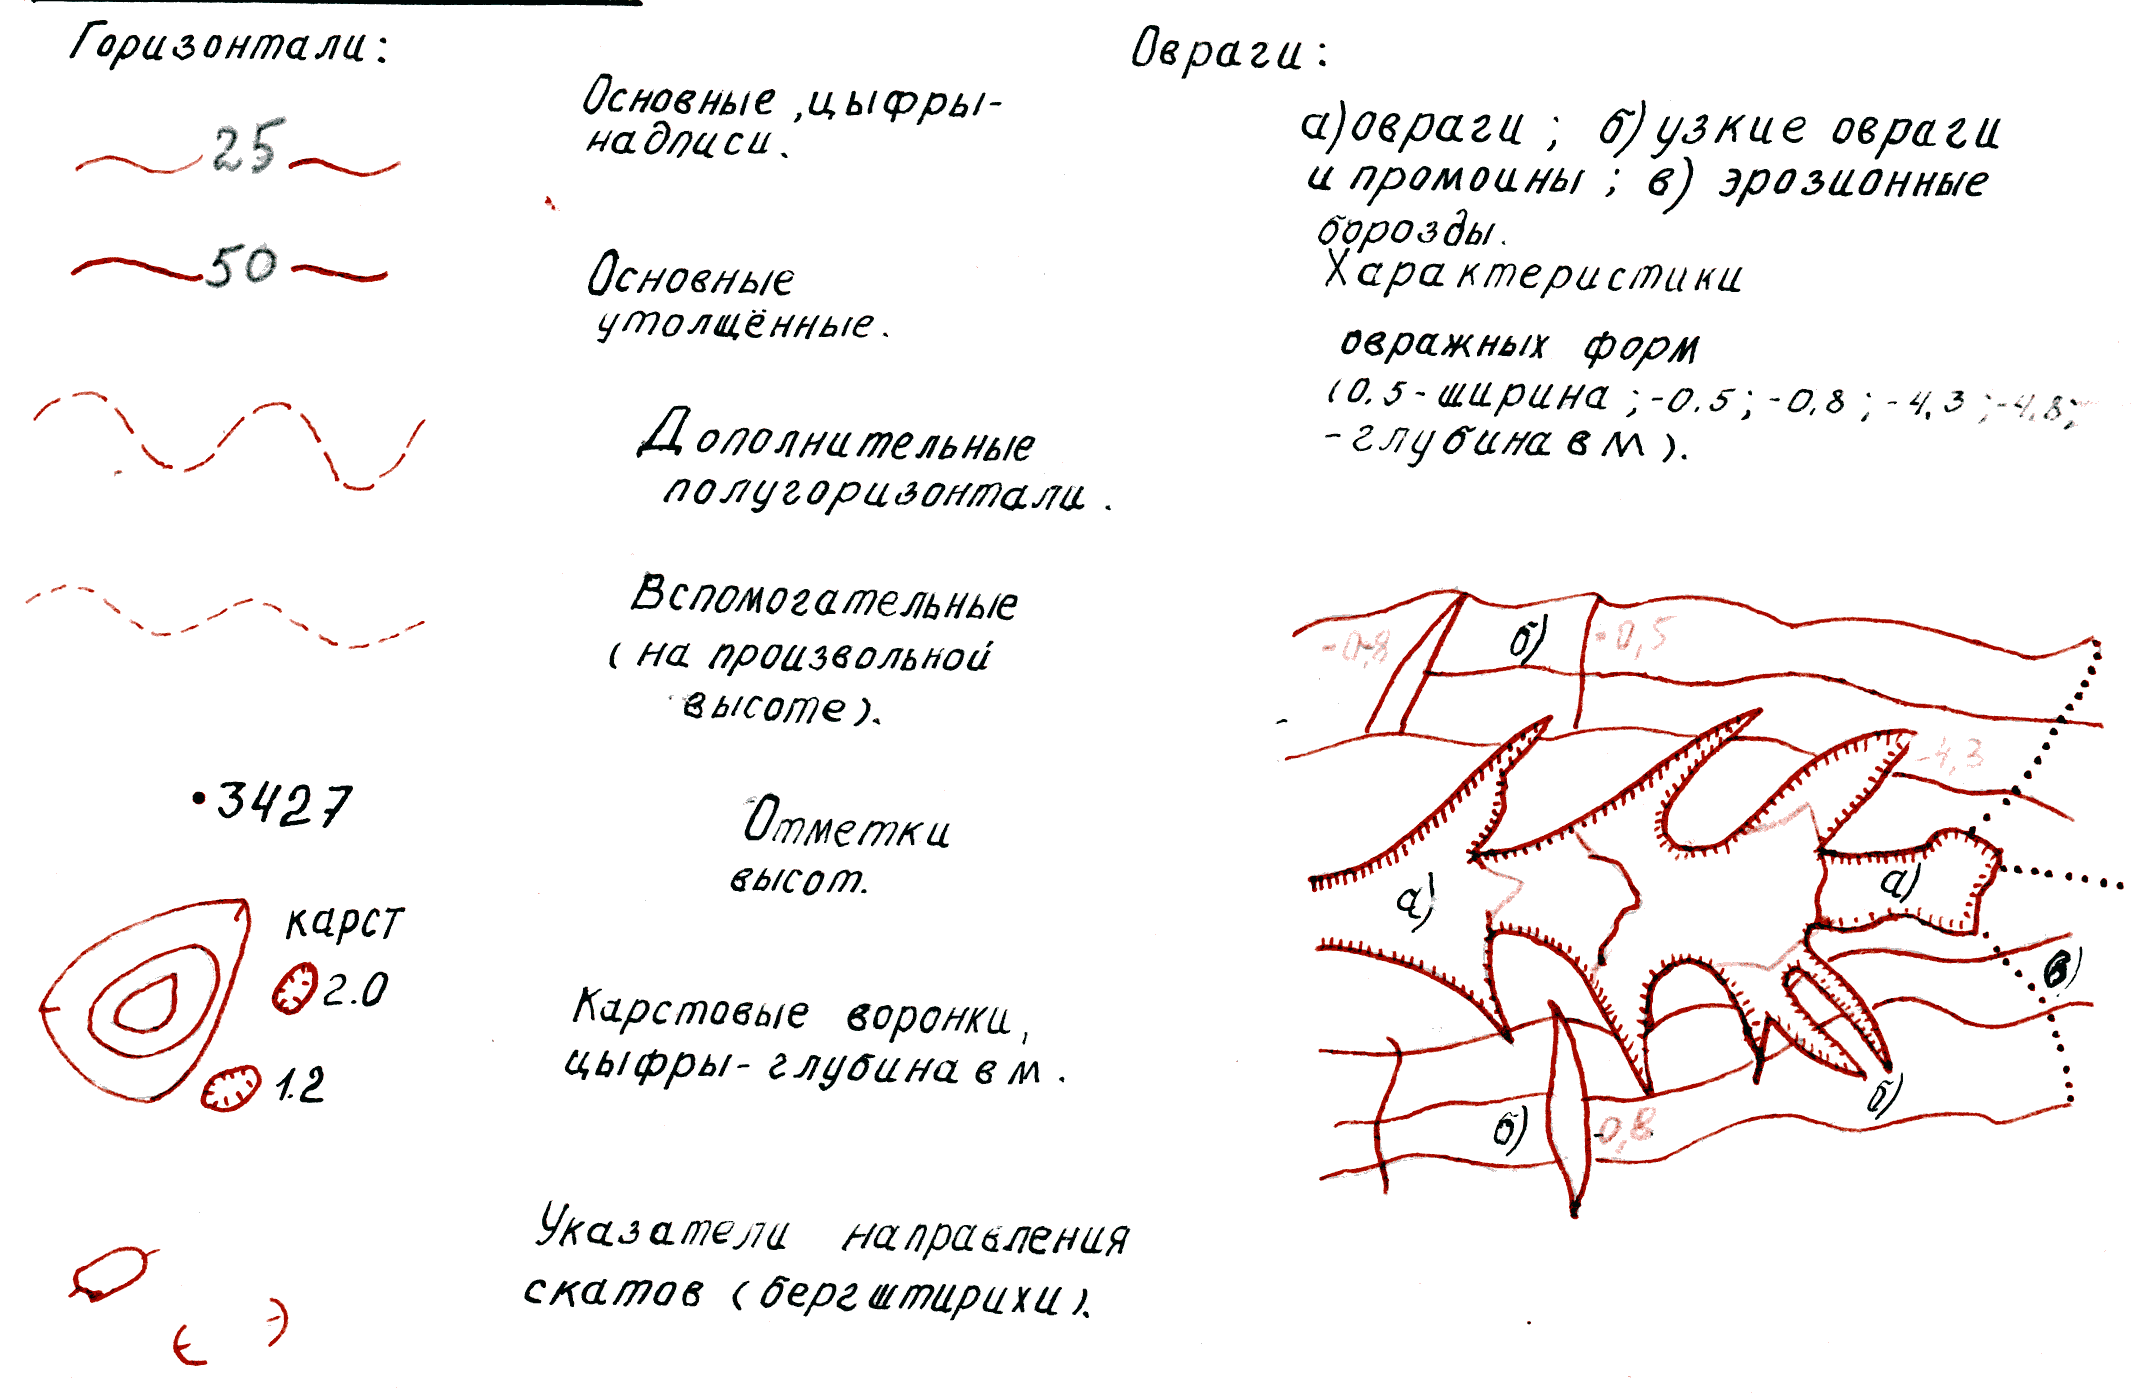 Горизонтали:
25
Основные, цыфры-
надписи.
50
Основные
утолщённые.
Дополнительные
полугоризонтали.
Вспомогательные
(на произвольной
высоте).
3427
Отметки
высот.
карст
2.0
1.2
Карстовые воронки,
цыфры-глубина в м.
Указатели направления
скатов (бергштирихи).
Овраги:
а) овраги; б) узкие овраги
и промоины; в) эрозионные
борозды.
Характеристики
овражных форм
(0,5-ширина; -0.5; -0,8; -4,3; -4,8;
-глубина в м).
-0,8
б)
-0,5
-4,3
а)
а)
в)
б)
б)
-0,8